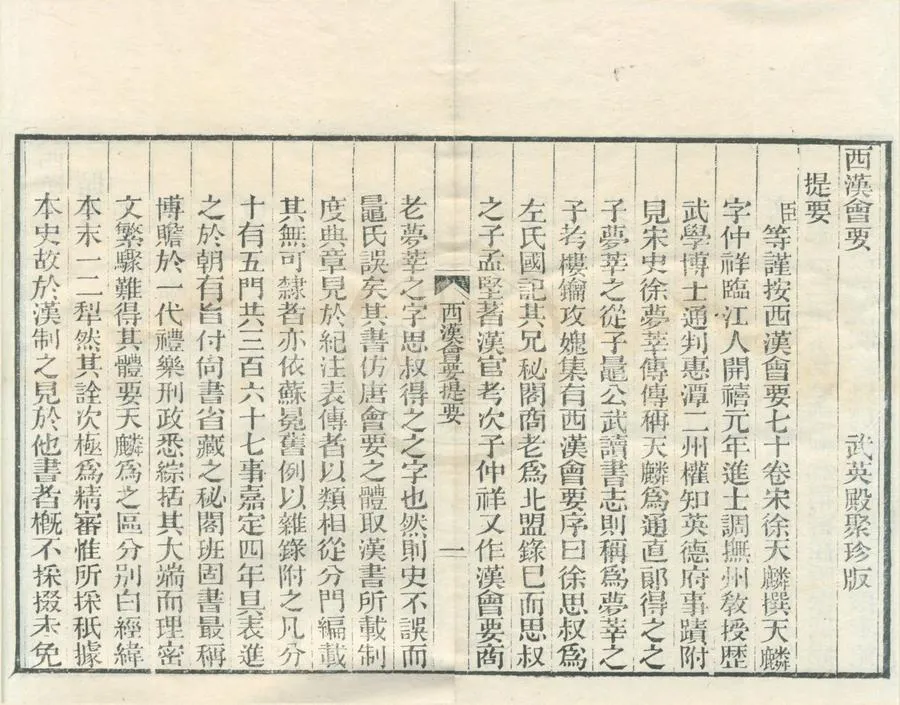 西漢會要　武英殿聚珍版
提要
臣等謹按西漢會要七十卷宋徐天麟撰天麟
字仲祥臨江人開禧元年進士調撫州敎授歴
武學博士通判惠潭二州權知英德府事蹟附
見宋史徐夢莘傳傳稱天麟爲通直郞得之之
子夢莘之從子鼂公武讀書志則稱爲夢莘之
子考樓鑰攻媿集有西漢會要序曰徐思叔爲
左氏國記其兄秘閣商老爲北盟錄已而思叔
之子孟堅著漢官考次子仲祥又作漢會要商
西漢會要提要　一
老夢莘之字思叔得之之字也然則史不誤而
鼂氏誤矣其書仿唐會要之體取漢書所載制
度典章見於紀注表傳者以類相從分門編載
其無可隸者亦依蘇冕舊例以雜錄附之凡分
十有五門共三百六十七事嘉定四年具表進
之於朝有旨付尙書省藏之秘閣班固書最稱
博贍於一代禮樂刑政悉綜括其大端而理密
文繁驟難得其體要天麟爲之區分別白經緯
本末一二犁然其詮次極爲精審惟所採秖據
本史故於漢制之見於他書者槪不採掇未免